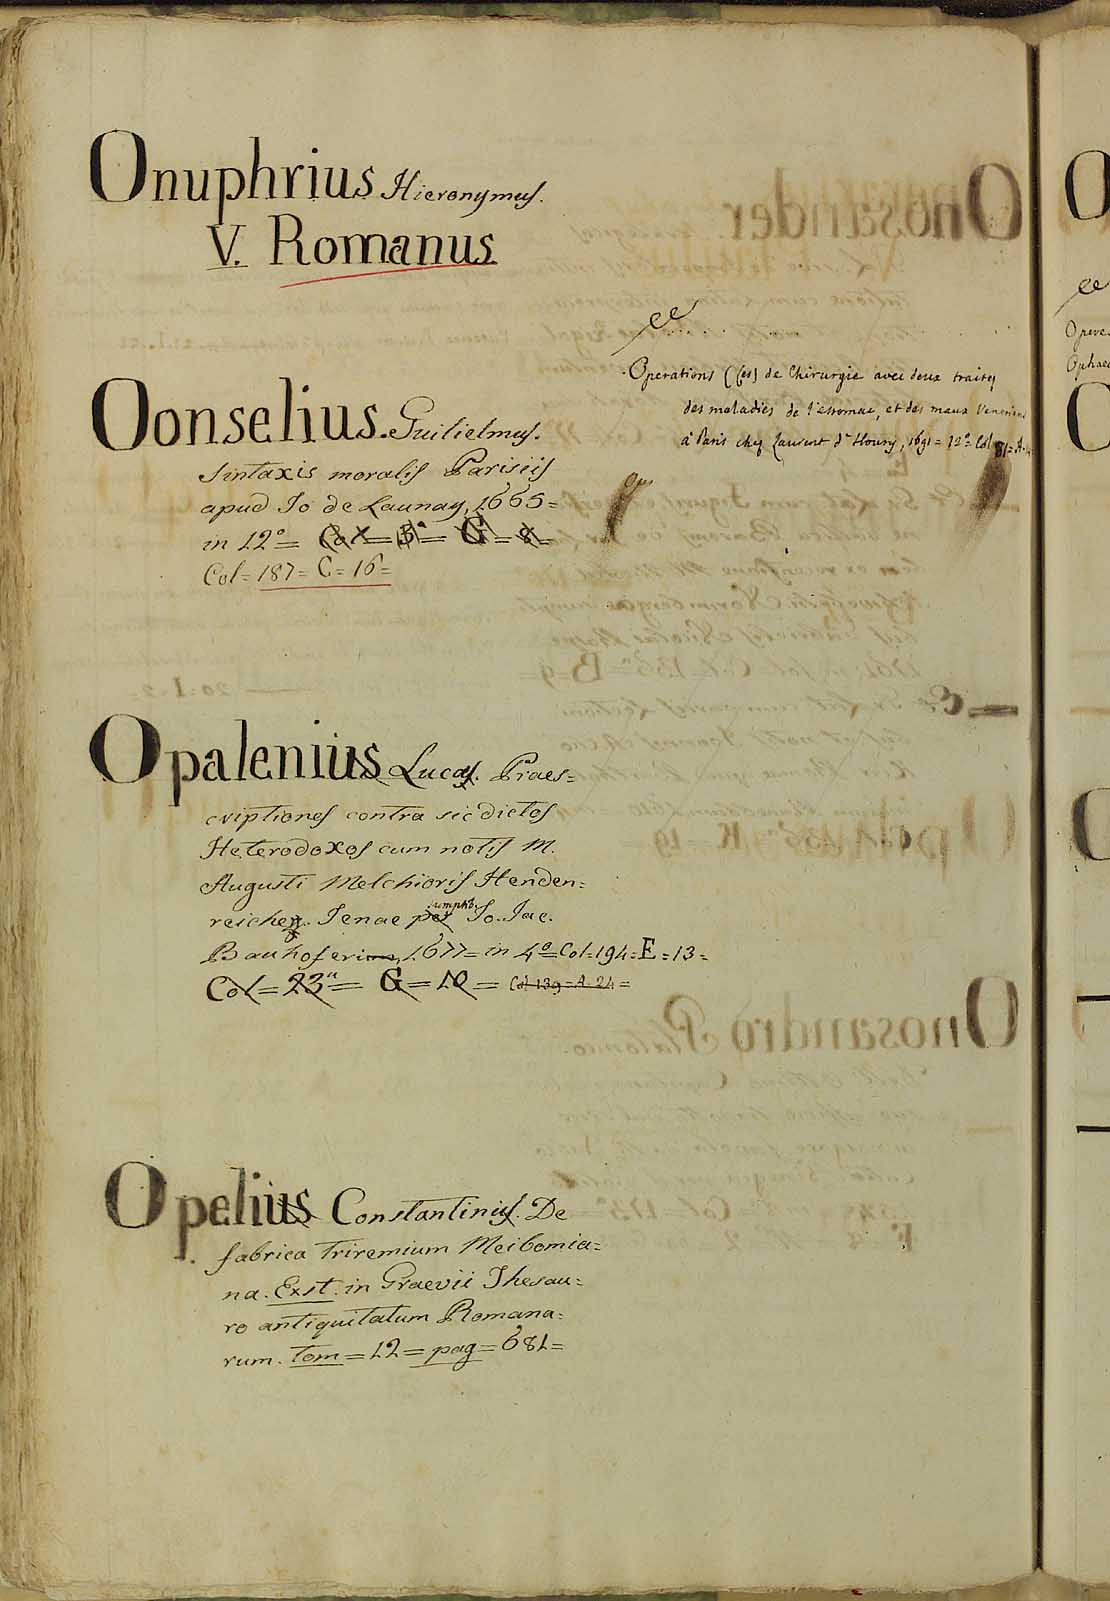 Onuphrius Hieronymus.
V. Romanus
Oonselius. Guilielmus.
Sintaxis moralis Parisiis
apud Jo de Launay, 1665=
in 12°= Col = 5ª= G = 8=
Col= 187= C= 16=
Opalenius Lucas. Praes=
criptiones contra sic dictos
Heterodoxos cum notis M.
Augusti Melchioris Henden=
reichen. Jenae per sumptib. Jo. Jac.
Bauhoferi 1677= in 4°= Col=194=E=13=
Col= 23ª= G= 10= Col 139=A. 24=
Opelius Constantinus. De
fabrica Triremium Meibomia=
na. Exst. in Graevii Thesau=
ro antiquitatum Romana=
rum. Tom= 12= pag= 681=
Operations (les) de Chirurgie avec deux traites
des maladies de l'estomac, et des maux Veneriens
à Paris chez Laurent d'Houry, 1691= 12°= Col 81= A.
Ope